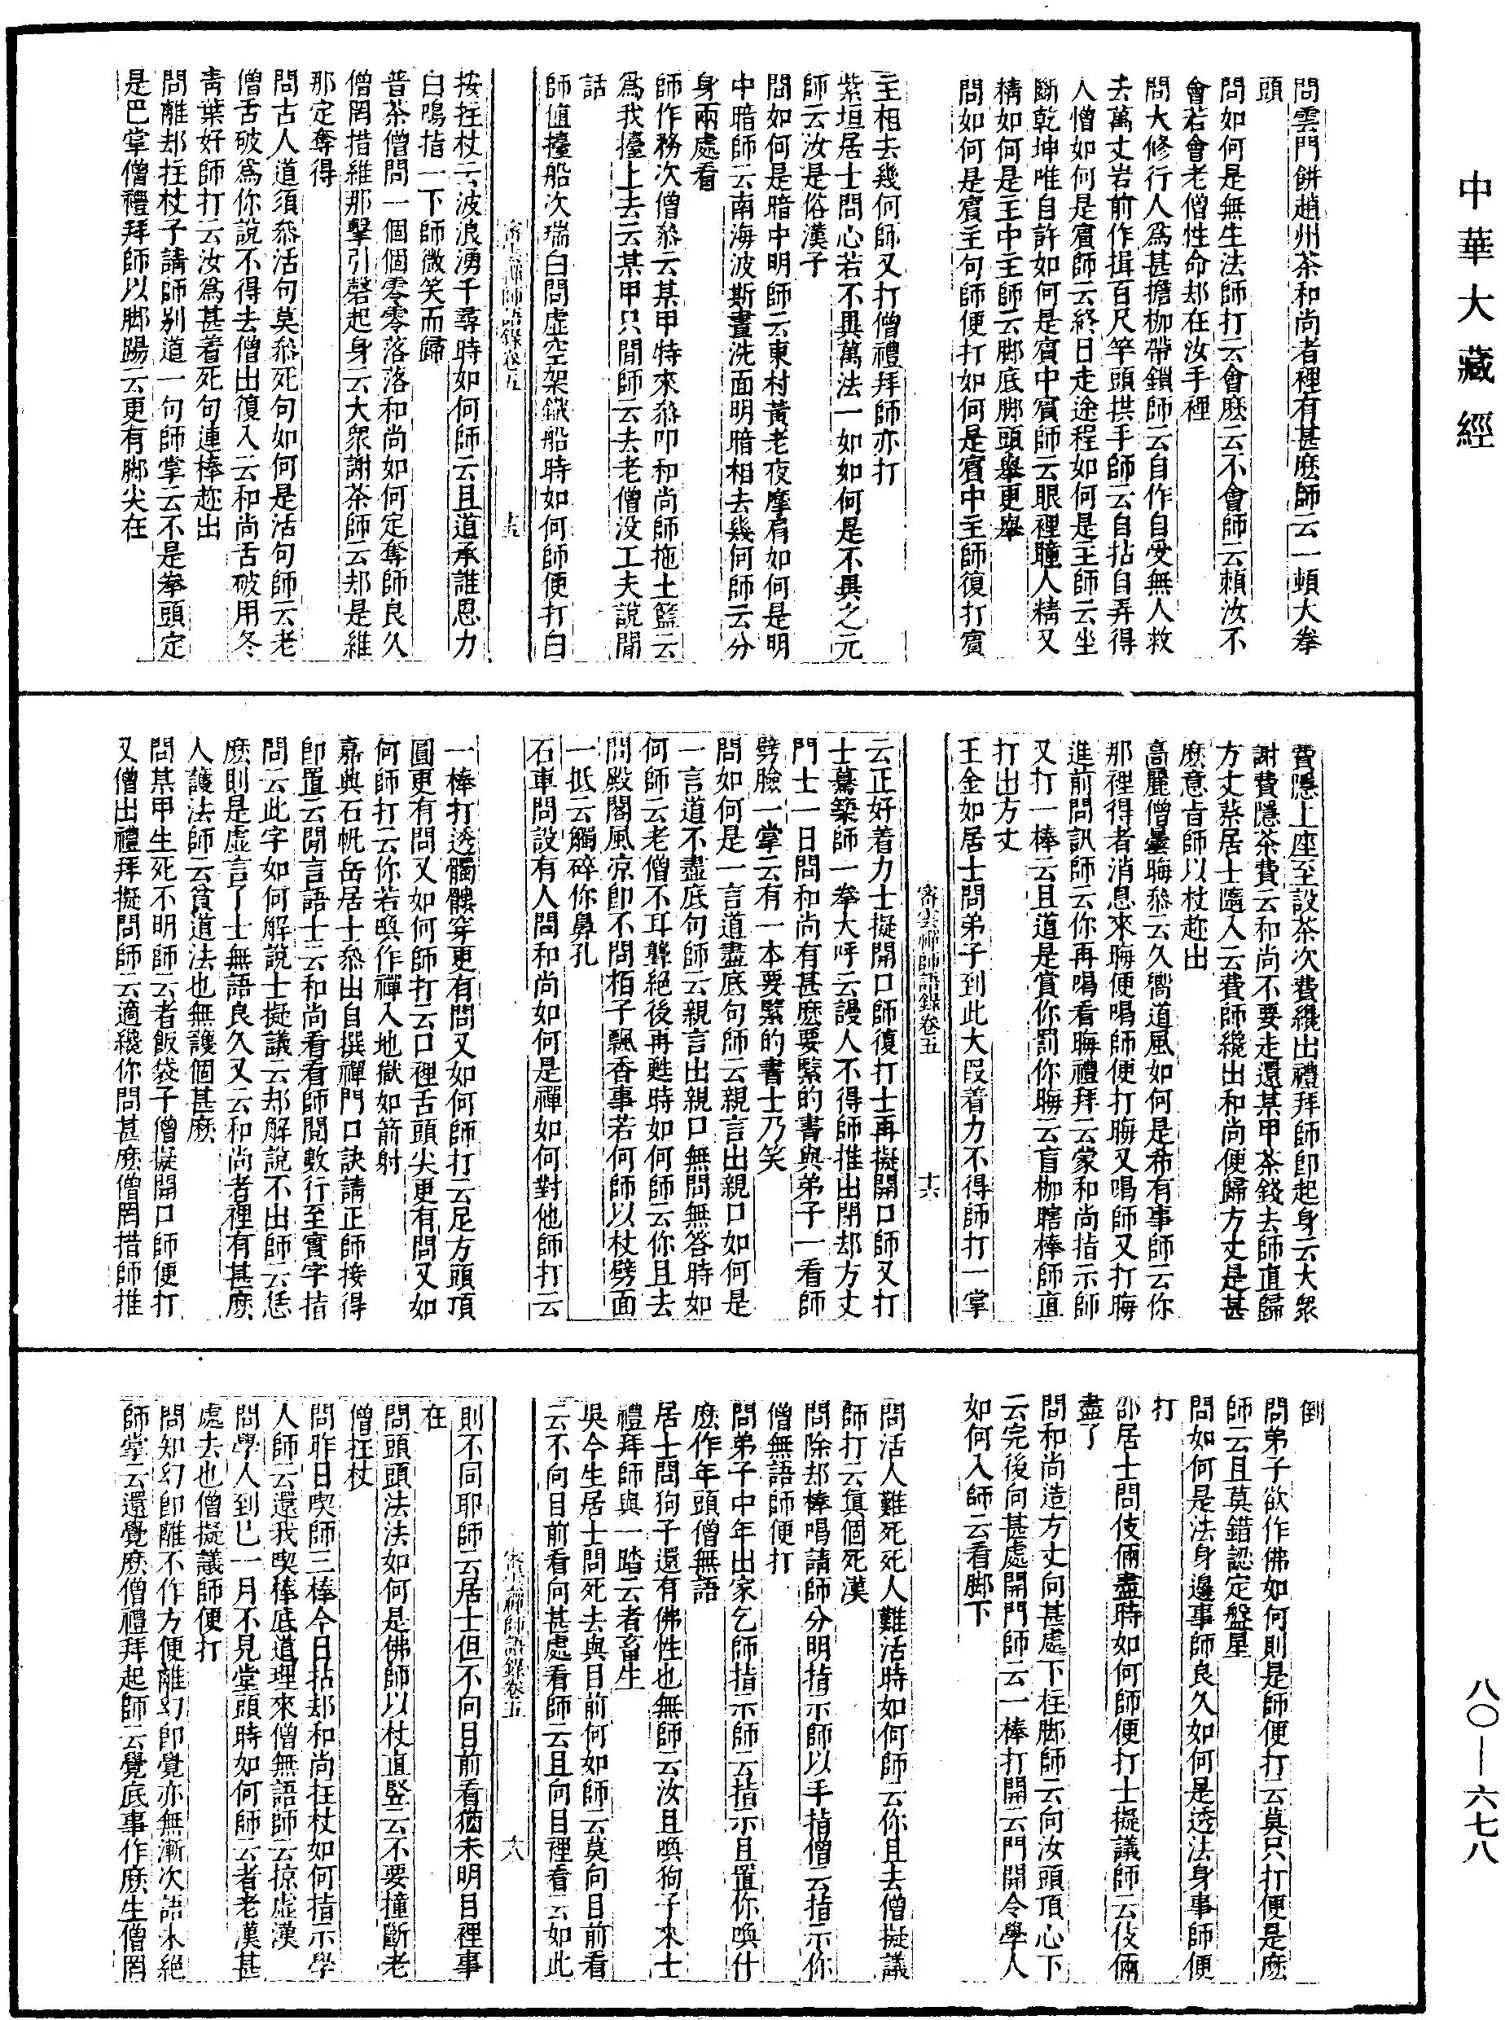 中華大藏經
八〇—六七八
問雲門餅趙州茶和尚者裡有甚麽師云一頓大拳
頭
問如何是無生法師打云會麽云不會師云賴汝不
會若會老僧性命却在汝手裡
問大修行人爲甚擔枷帶鎖師云自作自受無人救
去萬丈岩前作揖百尺竿頭拱手師云自拈自弄得
人僧如何是賓師云終日走途程如何是主師云坐
斷乾坤唯自許如何是賓中賓師云眼裡瞳人精又
精如何是主中主師云脚底脚頭舉更舉
問如何是賓主句師便打如如何是賓中主師復打賓
主相去幾何師又打僧禮拜師亦打
紫垣居士問心若不異萬法一如如何是不異之元
師云汝是俗漢子
問如何是暗中明師云東村黃老夜摩肩如何是明
中暗師云南海波斯晝洗面明暗相去幾何師云分
身兩處看
師作務次僧叅云某甲特來叅叩和尚師拖土籃云
爲我擡上去云某甲只閒師云去老僧没工夫說閒
話
師値擡船次瑞白問虛空架鐵船時如何師便打白
密雲禪師語錄卷五 十五
按拄杖云波浪湧千尋時如何師云且道承誰恩力
白鳴指一下師微笑而歸
普茶僧問一個個零零落落和尚如何定奪師良久
僧罔措維那擊引磬起身云大衆謝茶師云却是維
那定奪得
問古人道須叅活句莫叅死句如何是活句師云老
僧舌破爲你說不得去僧出復入云和尚舌破用冬
靑葉好師打云汝爲甚着死句連棒趂出
問離却拄杖子請師别道一句師掌云不是拳頭定
是巴掌僧禮拜師以脚踢云更有脚尖在
費隱上座至設茶次費纔出禮拜師卽起身云大衆
謝費隱茶費云和尚不要走還某甲茶錢去師直歸
方丈蔡居士隨入云費師纔出和尚便歸方丈是甚
麽意旨師以杖趂出
高麗僧曇晦叅云久嚮道風如何是希有事師云你
那裡得者消息來晦便喝師便打晦又喝師又打晦
進前問訊師云你再喝看晦禮拜云蒙和尚指示師
又打一棒云且道是賞你罰你晦云盲枷瞎棒師直
打出方丈
王金如居士問弟子到此大段着力不得師打一掌
密雲禪師語錄卷五 十六
云正好着力士擬開口師復打士再擬開口師又打
士驀築師一拳大呼云謾人不得師推出閉却方丈
門士一日問和尚有甚麽要緊的書與弟子一看師
劈臉一掌云有一本要緊的書士乃笑
問如何是一言道盡底句師云親言出親口如何是
一言道不盡底句師云親言出親口無問無答時如
何師云老僧不耳聾絕後再甦時如何師云你且去
問殿閣風凉卽不問栢子飄香事若何師以杖劈面
一抵云觸碎你鼻孔
石車問設有人問和尚如何是禪如何對他師打云
一棒打透髑髏穿更有問又如何師打云足方頭頂
圓更有問又如何師打云口裡舌頭尖更有問又如
何師打云你若喚作禪入地獄如箭射
嘉興石帆岳居士叅出自撰禪門口訣請正師接得
卽置云閒言語士云和尚看看師閱數行至實字指
問云此字如何解說士擬議云却解說不出師云恁
麽則是虛言了士無語良久又云和尚者裡有甚麽
人護法師云貧道法也無護個甚麽
問某甲生死不明師云者飯袋子僧擬開口師便打
又僧出禮拜擬問師云適纔你問甚麽僧罔措師推
倒
問弟子欲作佛如何則是師便打云莫只打便是麽
師云且莫錯認定盤星
問如何是法身邊事師良久如何是透法身事師便
打
邵居士問伎倆盡時如何師便打士擬議師云伎倆
盡了
問和尚造方丈向甚處下柱脚師云向汝頭頂心下
云完後向甚處開門師云一棒打開云門開令學人
如何入師云看脚下
問活人難死死人難活時如何師云你且去僧擬議
師打云眞個死漢
問除却棒喝請師分明指示師以手指僧云指示你
僧無語師便打
問弟子中年出家乞師指示師云指示且置你喚什
麽作年頭僧無語
居士問狗子還有佛性也無師云汝且喚狗子來士
禮拜師與一踏云者畜生
吳今生居士問死去與目前何如師云莫向目前看
云不向目前看向甚處看師云且向目裡看云如此
密雲禪師語錄卷五 十八
則不同耶師云居士但不向目前看猶未明目裡事
在
問頭頭法法如何是佛師以杖直竪云不要撞斷老
僧拄杖
問昨日喫師三棒今日拈却和尚拄杖如何指示學
人師云還我喫棒底道理來僧無語師云掠虛漢
問學人到已一月不見堂頭時如何師云者老漢甚
處去也僧擬議師便打
問知幻卽離不作方便離幻卽覺亦無漸次語未絕
師掌云還覺麽僧禮拜起師云覺底事作麽生僧罔